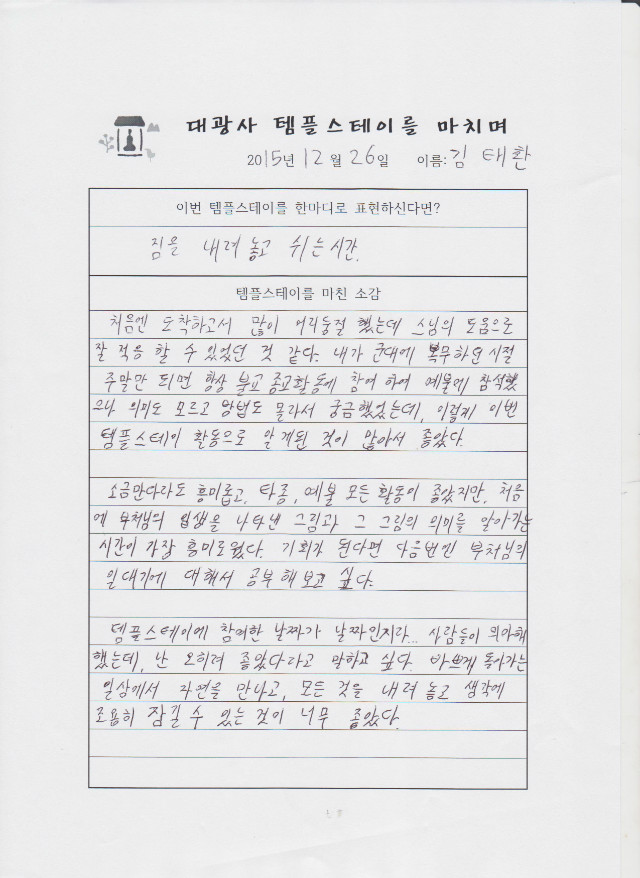 대광사 템플스테이를 마치며
2015년 12월 26일 이름: 김태환
이번 템플스테이를 한마디로 표현하신다면?
짐을 내려 놓고 쉬는 시간.
템플스테이를 마친 소감
처음엔 도착하고서 많이 어리둥절 했는데 스님의 도움으로
잘 적응 할 수 있었던 것 같다. 내가 군대에 복무하던 시절
주말만 되면 항상 불교 종교활동에 참여 하여 예불에 참석했
으나 의미도 모르고 방법도 몰라서 궁금했었는데, 이렇게 이번
템플스테이 활동으로 알게된 것이 많아서 좋았다.
소금만다라도 흥미롭고, 타종, 예불 모든 활동이 좋았지만, 처음
에 부처님의 일생을 나타낸 그림과 그 그림의 의미를 알아가는
시간이 가장 흥미로웠다. 기회가 된다면 다음번엔 부처님의
일대기에 대해서 공부해보고 싶다.
템플스테이에 참여한 날짜가 날짜인지라... 사람들이 의아해
했는데, 난 오히려 좋았다라고 말하고 싶다. 바쁘게 돌아가는
일상에서 자연을 만나고, 모든 것을 내려 놓고 생각에
조용히 잠길 수 있는 것이 너무 좋았다.